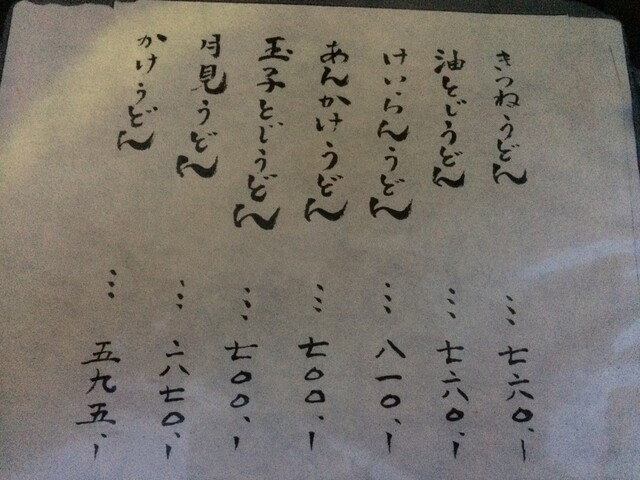 きつねうどん … 七六〇、ー
油とじうどん … 七六〇、ー
けいらんうどん … 八一〇、ー
あんかけうどん … 七〇〇、ー
玉子とじうどん … 七〇〇、ー
月見うどん … 六七〇、ー
かけうどん … 五九五、ー